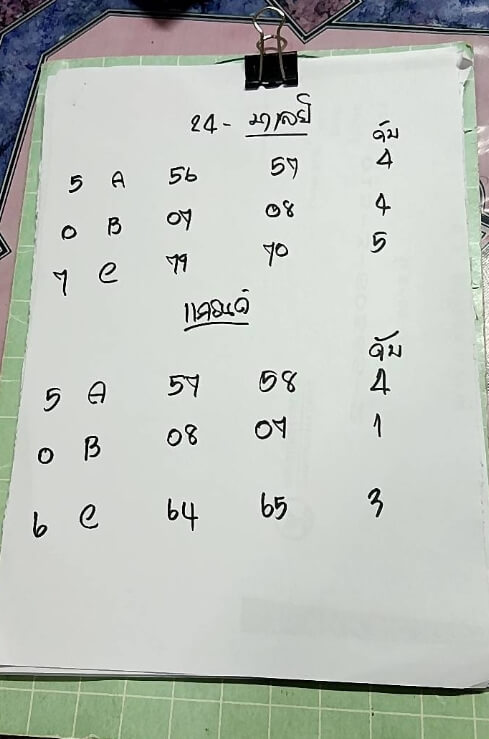 24 - มาเลย์
ดับ
5 A 56 57 4
0 B 07 08 4
7 C 79 70 5
แคนดี้
ดับ
5 A 57 58 4
0 B 08 07 1
6 C 64 65 3